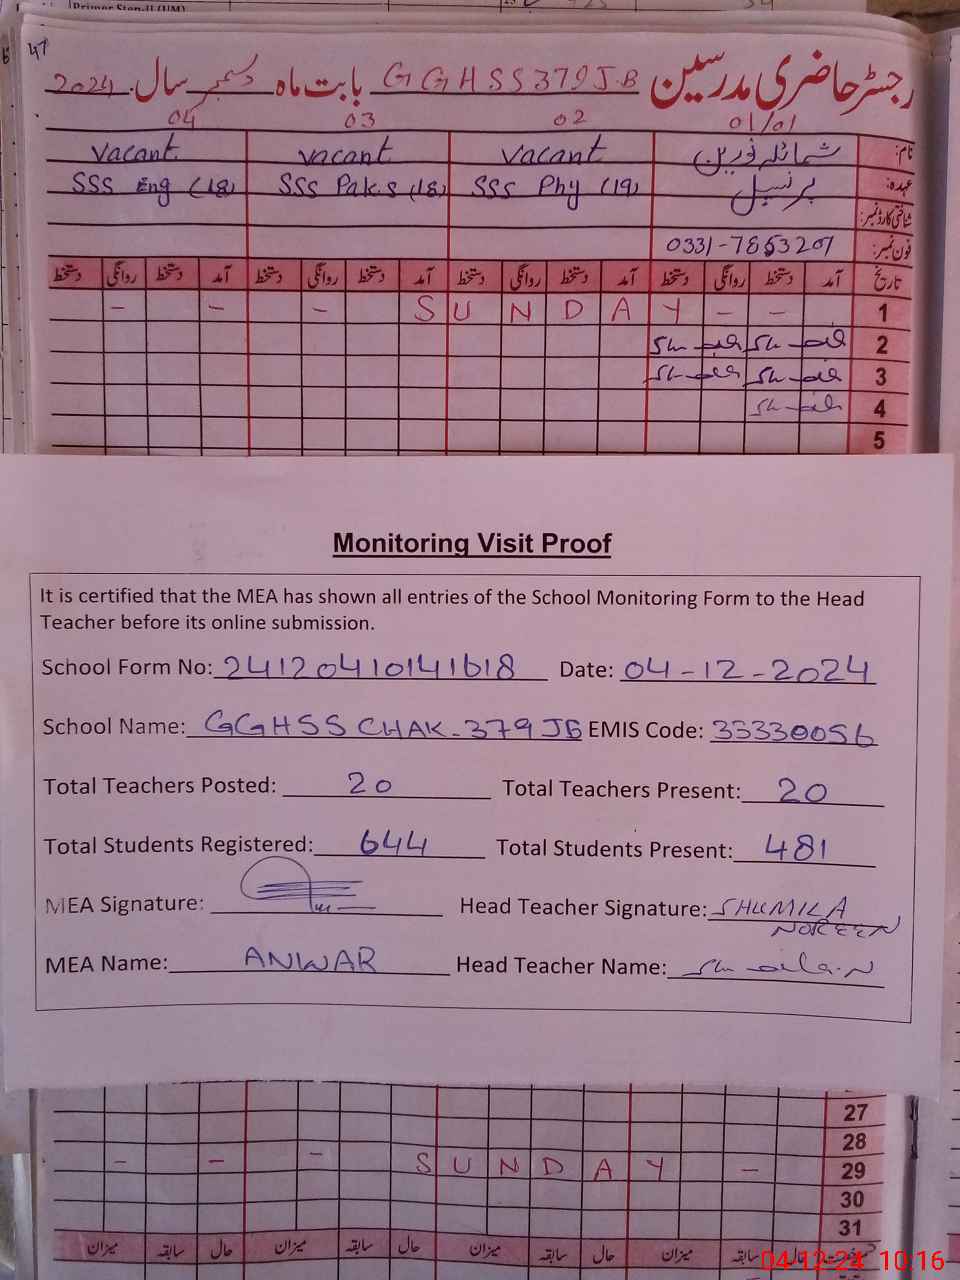 47
رجسٹر حاضری مدرسین GGHSS 379 J-B بابت ماہ دسمبر سال 2024
01/01 02 03 04
نام: شمائلہ نورین vacant vacant vacant
عہدہ: پرنسپل SSS Phy (19) SSS Pak.s (18) SSS Eng (18)
شناختی کارڈ نمبر:
فون نمبر: 0331-7853201
تاریخ آمد دستخط روانگی دستخط آمد دستخط روانگی دستخط آمد دستخط روانگی دستخط آمد دستخط روانگی دستخط
- - - S U N D A Y - - 1
2
3
4
5
Monitoring Visit Proof
It is certified that the MEA has shown all entries of the School Monitoring Form to the Head
Teacher before its online submission.
School Form No: 24120410141618 Date: 04-12-2024
School Name: GGHSS CHAK-379JB EMIS Code: 33330056
Total Teachers Posted: 20 Total Teachers Present: 20
Total Students Registered: 644 Total Students Present: 481
MEA Signature: Head Teacher Signature: SHUMILA
NOREEN
MEA Name: ANWAR Head Teacher Name:
27
28
- - - S U N D A Y - 29
30
31
حال سابقہ میزان حال سابقہ میزان حال سابقہ میزان حال سابقہ میزان
04-12-24 10:16